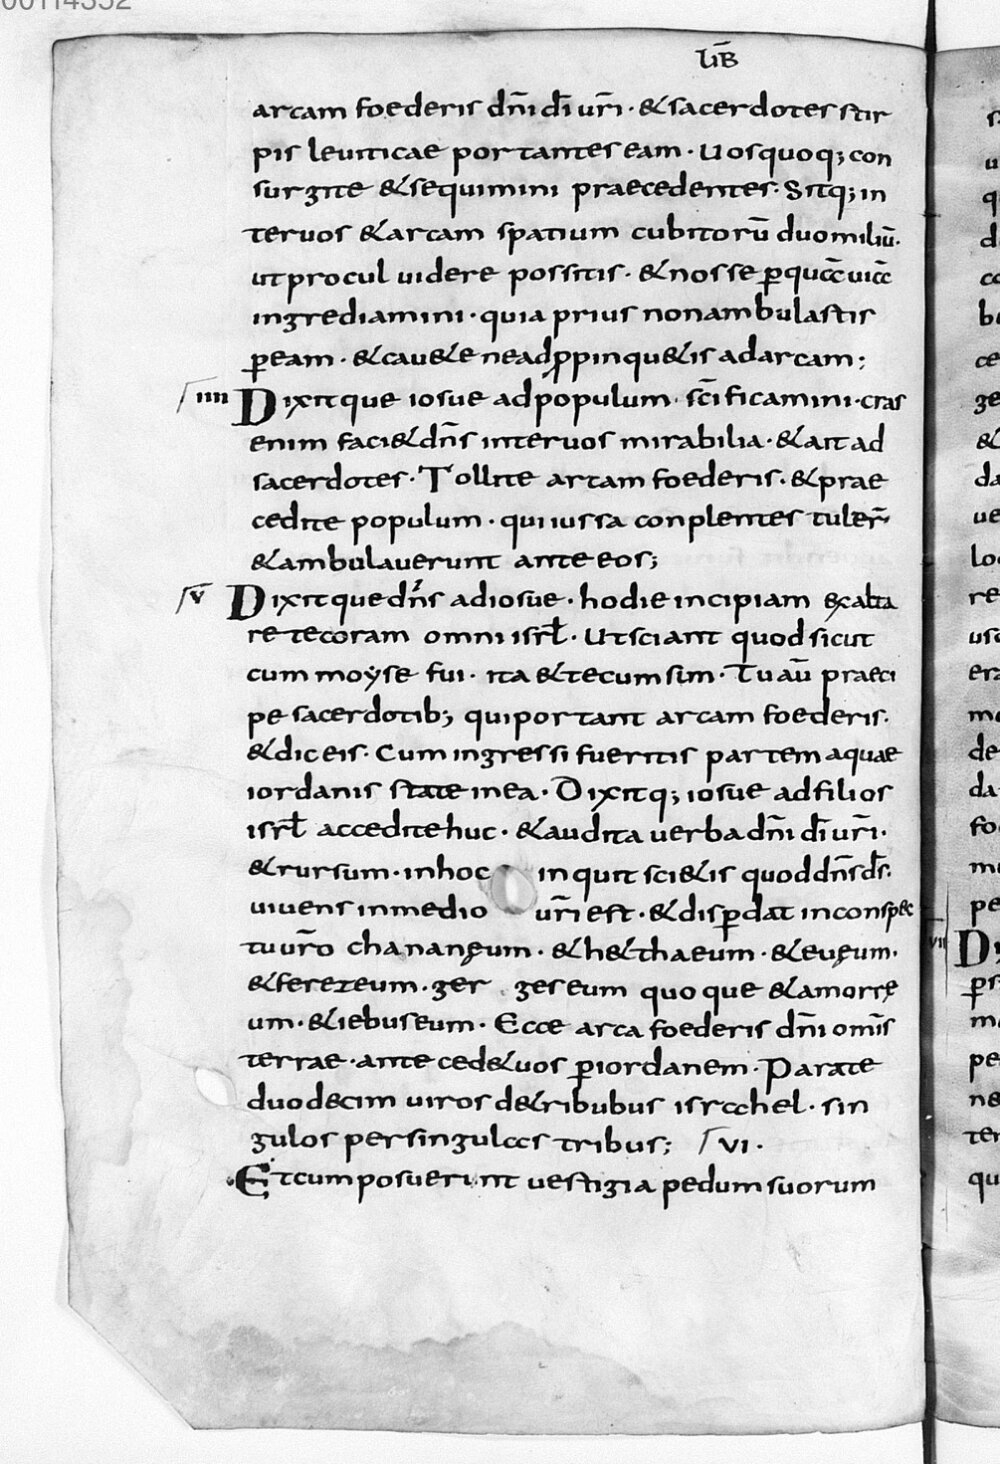 00114352
LIB̅
arcam foederis dn̄i dī ur̄i · & sacerdotes stir
pis leuiticae portantes eam · Uos quoq; con
surgite & sequimini praecedentes · Sitq; in
ter uos & arcam spatium cubitorū duo miliū ·
ut procul uidere possitis · & nosse ꝑ quā uiā
ingrediamini · quia prius non ambulastis
ꝑ eam · & cau&e ne adꝓpinqu&is ad arcam ;
IIII Dixitque iosue ad populum · sc̄ificamini · cras
enim faci& dn̄s inter uos mirabilia · & ait ad
sacerdotes · Tollite arcam foederis · & prae
cedite populum · qui iussa conplentes tuler̄
& ambulauerunt ante eos ;
V Dixitque dn̄s ad iosue · hodie incipiam exalta
re te coram omni isrl̄ · Ut sciant quod sicut
cum moyse fui · ita & tecum sim · Tu aū praeci
pe sacerdotib; qui portant arcam foederis ·
& dic eis · Cum ingressi fueritis partem aquae
iordanis state in ea · Dixitq; iosue ad filios
isrl̄ accedite huc · & audita uerba dn̄i dī ur̄i ·
& rursum · in hoc inquit sci&is quod dn̄s ds̄
uiuens in medio ur̄i est · & disꝑdat in conspec
tu ur̄o chananęum · & h&thaeum · & euęum ·
& ferezeum · ger geseum quoque & amorrę
um · & iebuseum · Ecce arca foederis dn̄i omīs
terrae · anteced& uos ꝑ iordanem · Parate
duodecim uiros de tribubus israhel · sin
gulos per singulas tribus ; VI ·
Et cum posuerint uestigia pedum suorum
VII